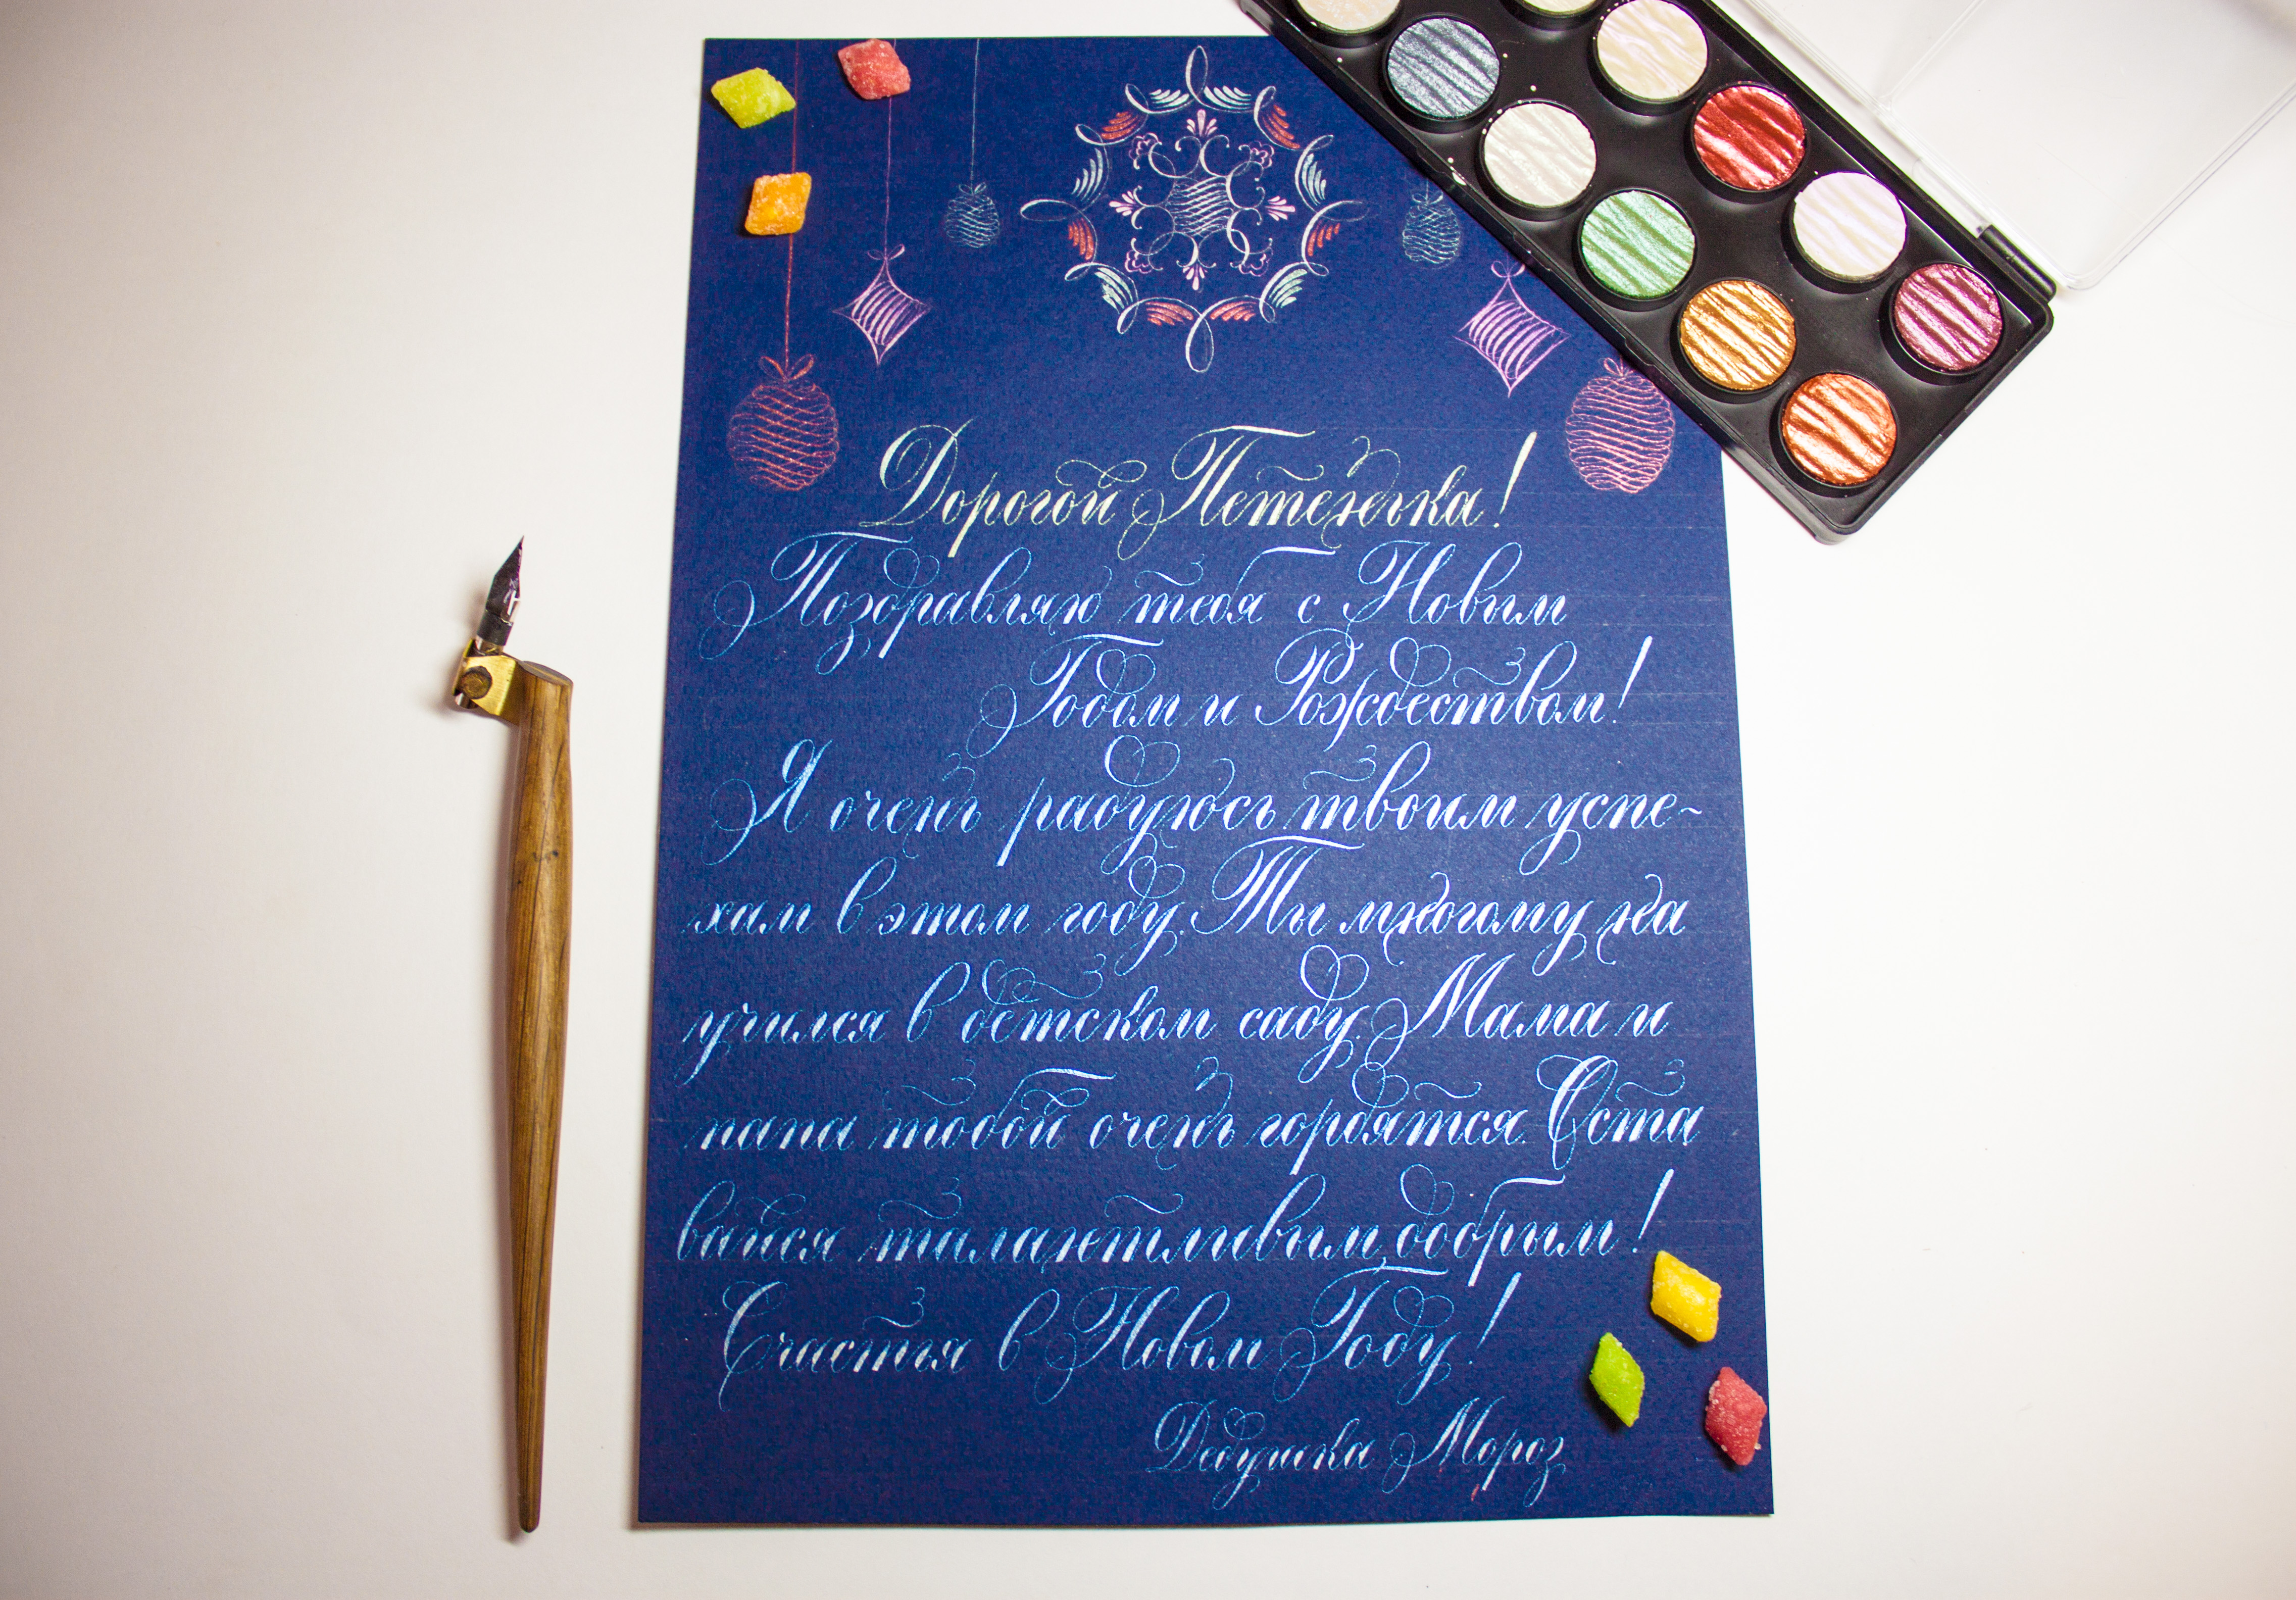 Дорогой Петенька!
Поздравляю тебя с Новым
Годом и Рождеством!
Я очень радуюсь твоим успе-
хам в этом году. Ты многому на
учился в детском саду. Мама и
папа тобой очень гордятся. Оста
вайся талантливым, добрым!
Счастья в Новом Году!
Дедушка Мороз